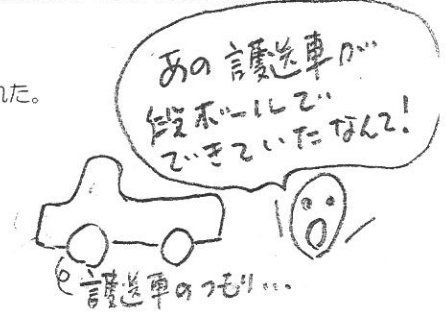 れた。
あの護送車が
段ボールで
できていたなんて!
護送車のつもり…